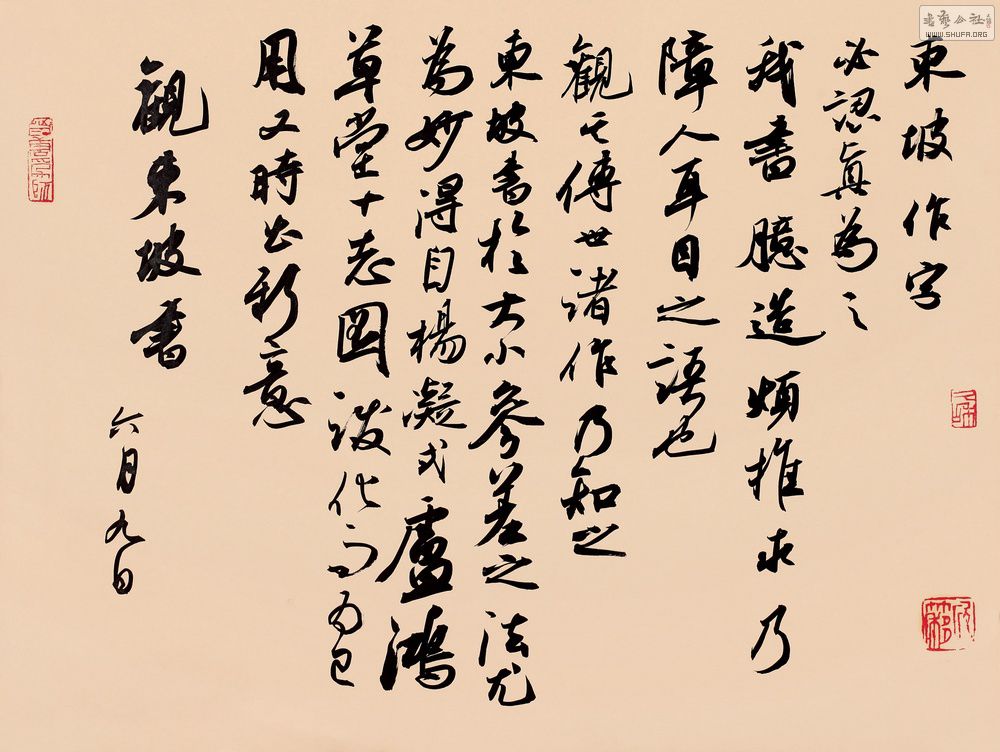 東坡作字
必認真為之
我書臆造煩推求乃
障人耳目之語也
觀其傳世諸作乃知之
東坡書於大小參差之法尤
為妙得自楊凝式盧鴻
草堂十志圖跋化而為己
用又時出新意
觀東坡書
六月九日
書藝公社
WWW.SHUFA.ORG